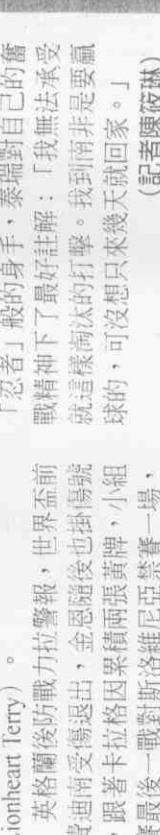 ionheart Terry)。
英格蘭後防戰力拉警報,世界盃前
費迪南受傷退出,金恩隨後也掛傷號
,跟著卡拉格因累積兩張黃牌,小組
賽最後一戰對斯洛維尼亞禁賽一場,
「忍者」般的身手,泰瑞對自己的奮
戰精神下了最好註解:「我無法承受
就這樣淘汰的打擊。我到南非是要贏
球的,可沒想只來幾天就回家。」
(記者陳筱琳)